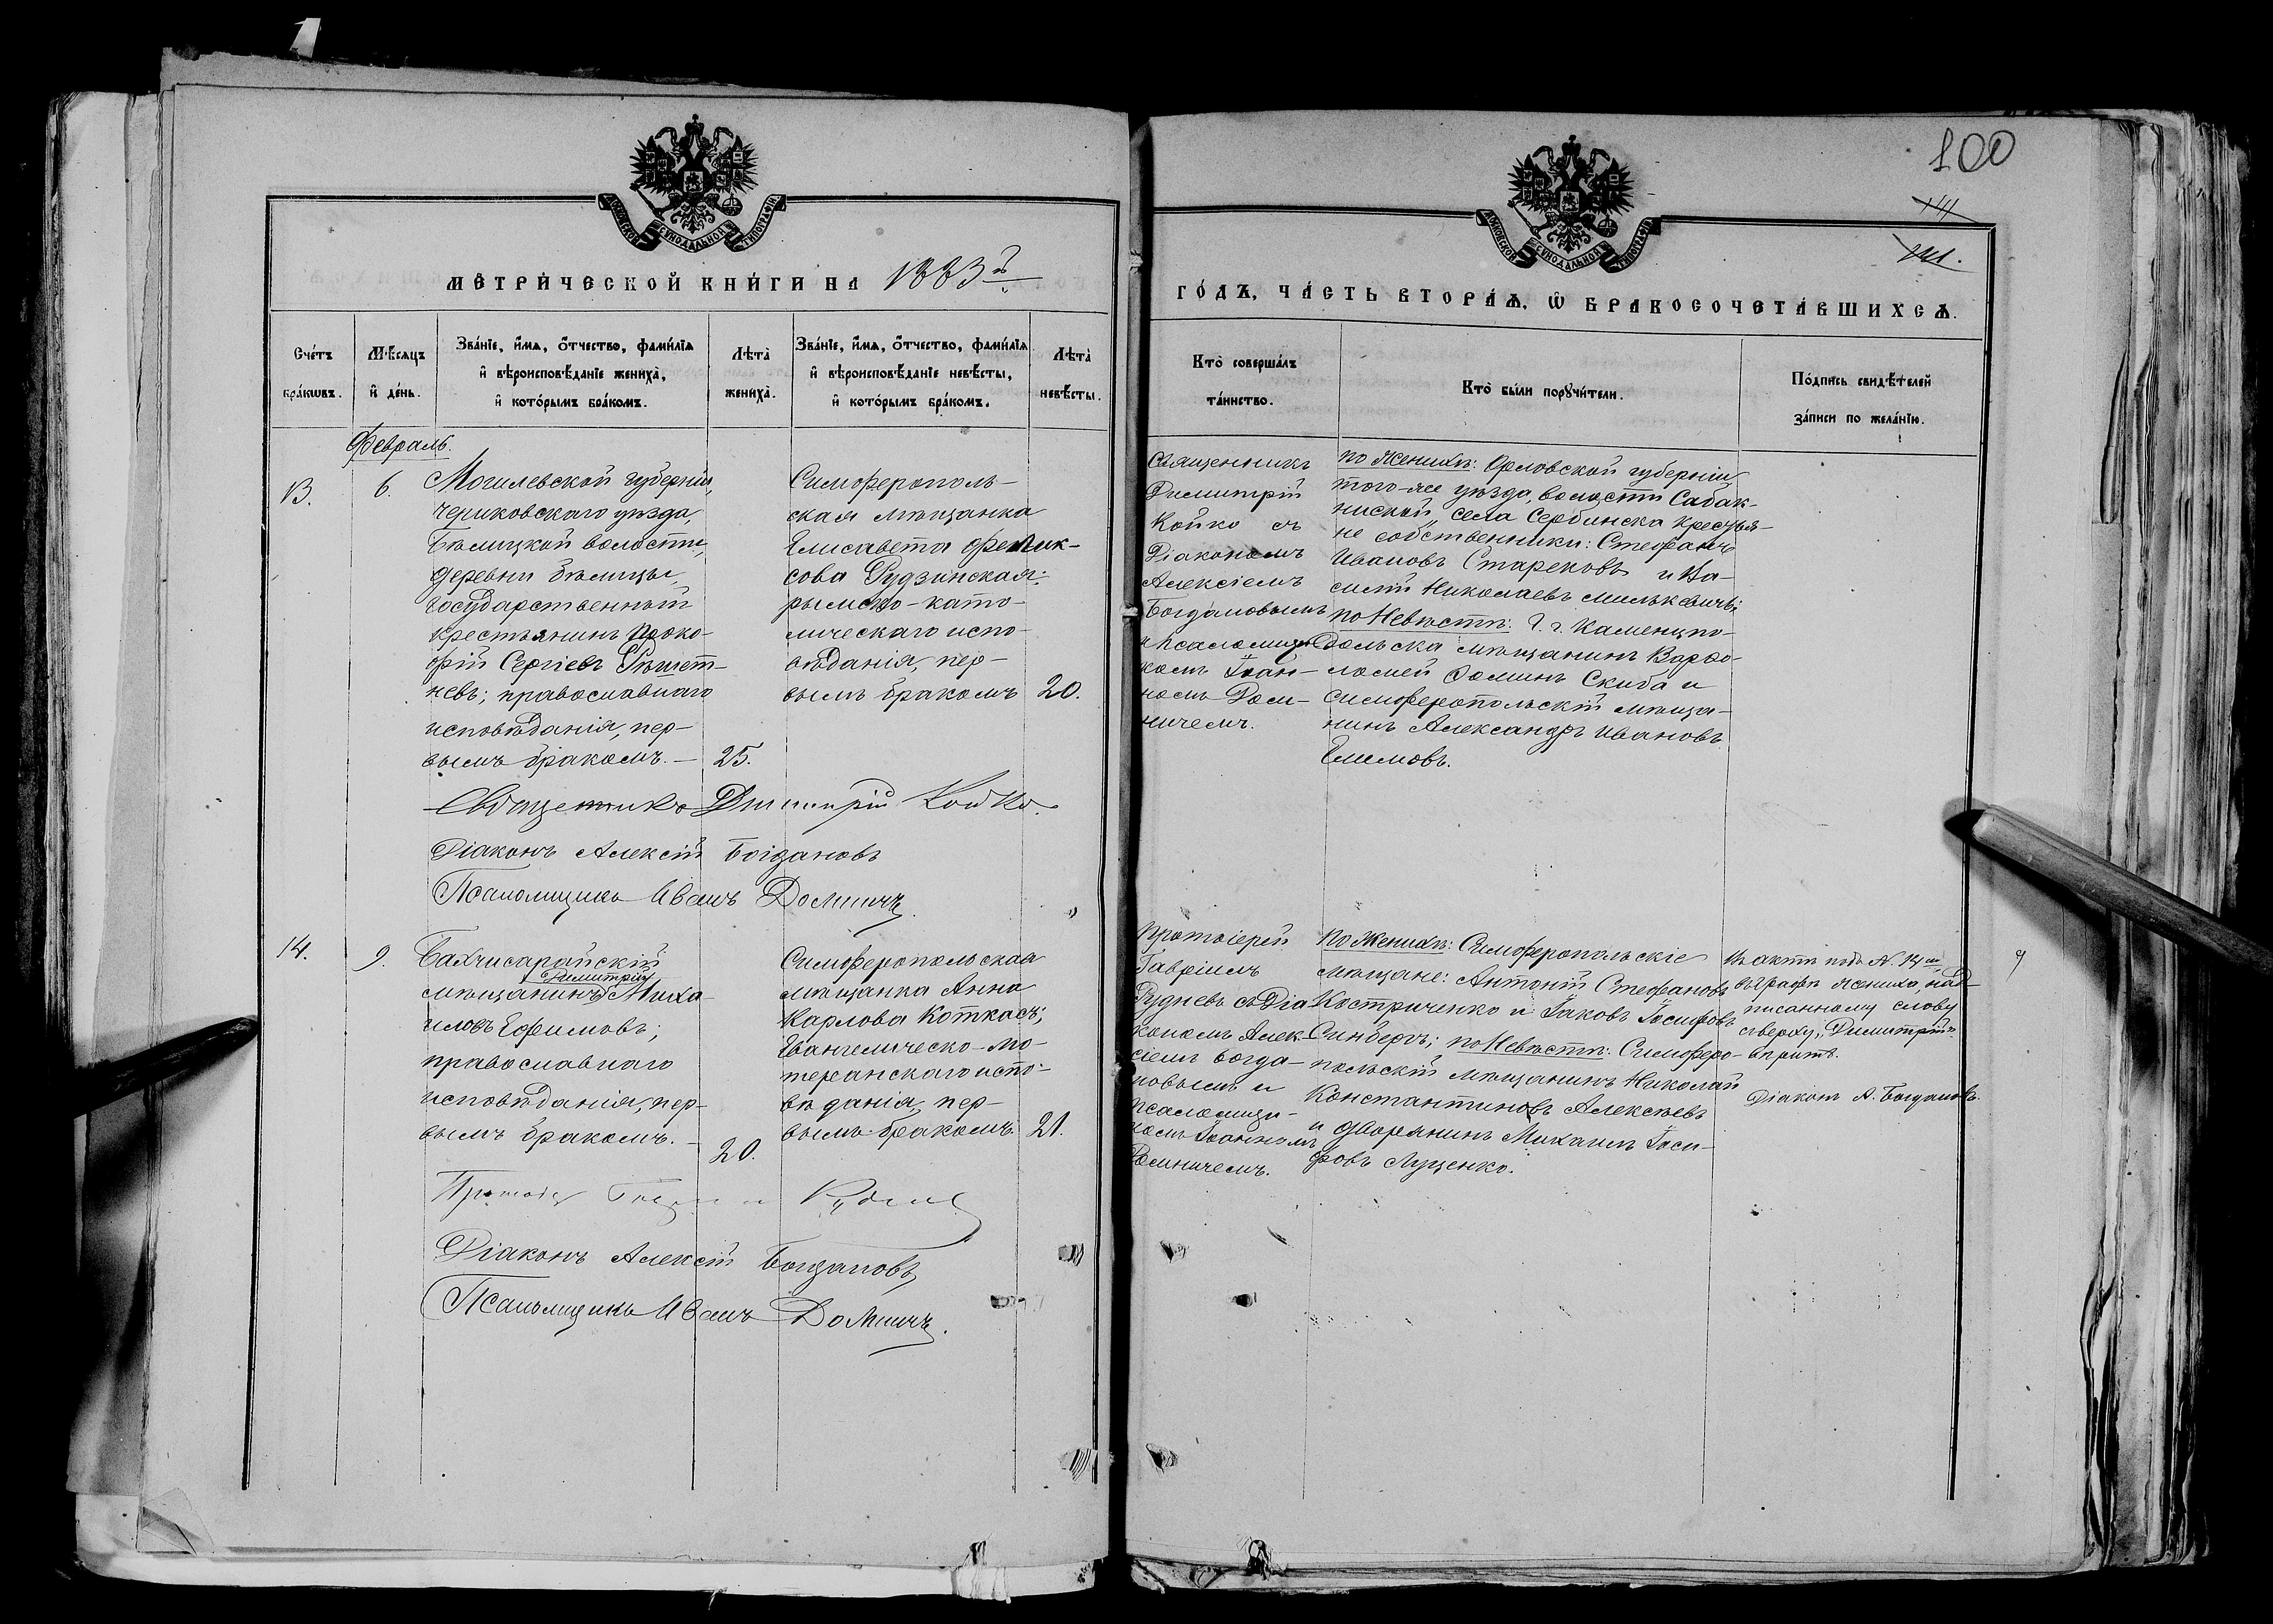 100
141
141.
МОСКОВСКОЙ СУНОДАЛЬНОЙ ТИПОГРАФІИ
МОСКОВСКОЙ СУНОДАЛЬНОЙ ТИПОГРАФІИ
МЕТРИ́ЧЕСКОЙ КНИ́ГИ НА 1883й
ГО́ДЪ, ЧА́СТЬ ВТОРА́Ѧ, Ѽ БРАКОСОЧЕТА́ВШИХСѦ.
Сче́тъ
бра́кѡвъ.
Мѣ́сѧцъ
и҆ де́нь.
Зва́нїе, и҆́мѧ, ѻ҆́тчество, фами́лїѧ
и҆ вѣроисповѣ́данїе жениха̀,
и҆ кото́рымъ бра́комъ.
Лѣ́та̀
жениха̀.
Зва́нїе, и҆́мѧ, ѻ҆́тчество, фами́лїѧ
и҆ вѣроисповѣ́данїе невѣ́сты,
и҆ кото́рымъ бра́комъ.
Лѣ́та̀
невѣ́сты.
Кто̀ соверша́лъ
та́инство.
Кто̀ бы́ли порꙋчи́тели.
По́дпись свидѣ́телей
за́писи по жела́нїю.
Февраль.
13.
6.
Могилевской губерніи,
Чериковскаго уѣзда,
Бѣлицкой волости,
деревни Бѣлицы,
государственный
крестьянинъ Проко-
фій Сергіевъ Рѣшет-
невъ; православнаго
исповѣданія, пер-
вымъ бракомъ. —
25.
Симферополь-
ская мѣщанка
Елисавета Феликс-
сова Рудзинская;
римско-като-
лическаго испо-
вѣданія, пер-
вымъ бракомъ
20.
Священникъ
Димитрій
Койко съ
Діакономъ
Алексіемъ
Богдановымъ
и псаломщи-
комъ Іоан-
номъ Доми-
ничемъ.
По Женихѣ: Орловской губерніи
того-же уѣзда, волости Сабак-
нинской, села Сербинска крестья-
не собственники: Стефанъ
Ивановъ Стареховъ и Ва-
силій Николаевъ Милькевичъ;
по Невѣстѣ: г. г. Каменцпо-
дольска мѣщанинъ Варфо-
ломей Фоминъ Скиба и
Симферопольскій мѣща-
нинъ Александръ Ивановъ
Климовъ.
Священникъ Димитрій Койко.
Діаконъ Алексій Богдановъ
Псаломщикъ Иванъ Доминичъ.
14.
9.
Бахчисарайскій
Димитрій
мѣщанинъ Миха-
иловъ Ефимовъ;
православнаго
исповѣданія, пер-
вымъ бракомъ. —
20.
Симферопольская
мѣщанка Анна
Карлова Коткасъ;
Евангелическо-лю-
теранскаго испо-
вѣданія, пер-
вымъ бракомъ
21.
Протоіерей
Гавріилъ
Рудневъ съ Діа-
кономъ Алек-
сіемъ Богда-
новымъ и
псаломщи-
комъ Іоанномъ
Доминичемъ.
По Женихѣ: Симферопольскіе
мѣщане: Антоній Стефановъ
Костриченко и Іаковъ Іосифовъ
Синбергъ; по Невѣстѣ: Симферо-
польскій мѣщанинъ Николай
Константиновъ Алексѣевъ
и дворянинъ Михаилъ Іоси-
фовъ Луценко.
Въ актѣ подъ N. 14 м,
въ графѣ жениха, над-
писанному слову
сверху „Димитрій"
вѣрить.
Діаконъ А. Богдановъ.
9
Протоіерей Гавріилъ Рудневъ
Діаконъ Алексій Богдановъ
Псаломщикъ Иванъ Доминичъ.